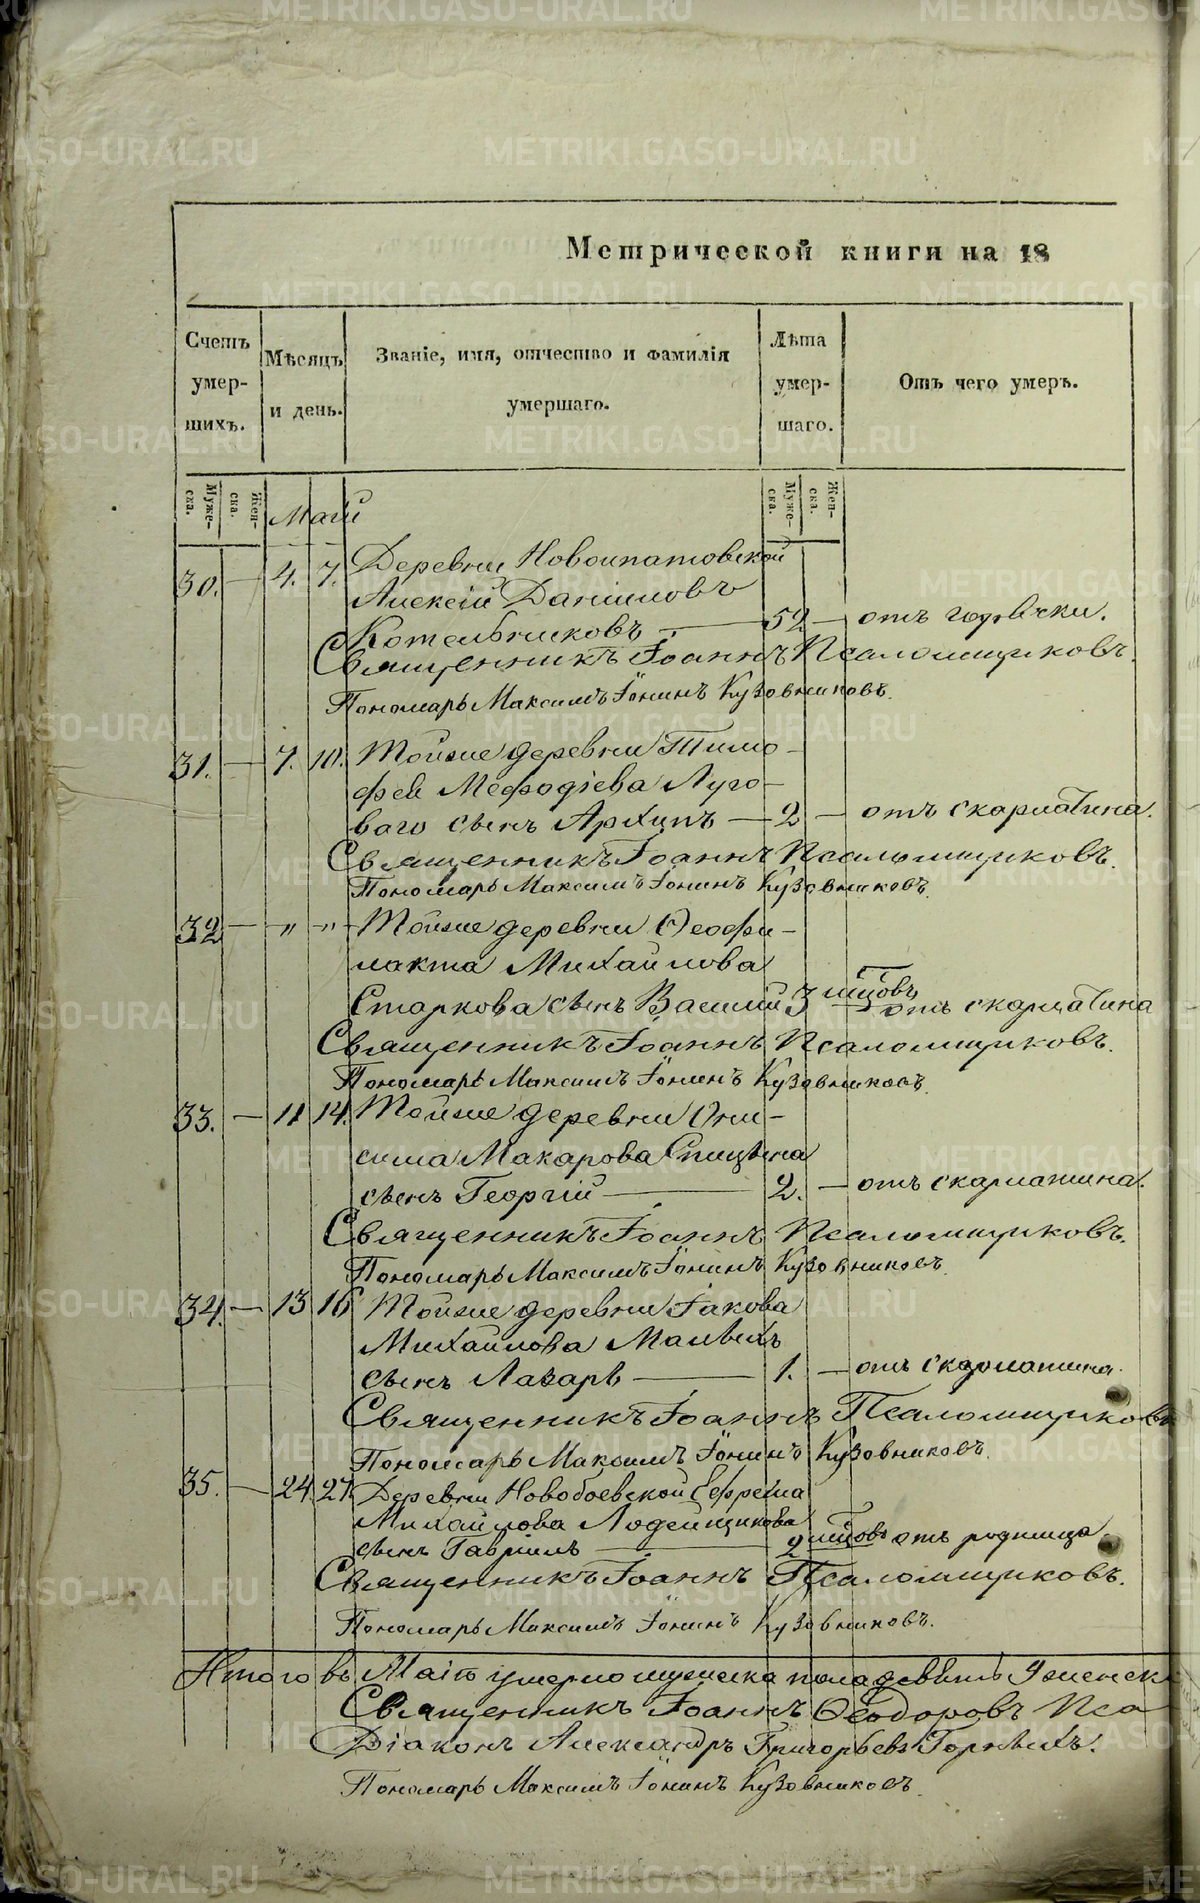 Метрической книги на 18
Счетъ умершихъ.
Мѣсяцъ и день.
Званіе, имя, отчество и фамилія умершаго.
Лѣта умершаго.
Отъ чего умеръ.
Муже-ска.
Жен-ска.
Муже-ска.
Жен-ска.
Маій
30. — 4. 7. Деревни Новоипатовской
Алексій Даниловъ
Котельниковъ — 52 — отъ горячки.
Священникъ Іоаннъ Псаломщиковъ.
Пономарь Максимъ Іонинъ Кузовниковъ.
31. — 7. 10. Тойже деревни Тимо-
фея Мефодіева Луго-
ваго сынъ Архипъ — 2 — отъ скарлатина.
Священникъ Іоаннъ Псаломщиковъ.
Пономарь Максимъ Іонинъ Кузовниковъ.
32 — " — " — Тойже деревни Ѳеофи-
лакта Михайлова
Старкова сынъ Василій 3 мцовъ отъ скарлатина
Священникъ Іоаннъ Псаломщиковъ.
Пономарь Максимъ Іонинъ Кузовниковъ.
33. — 11 14. Тойже деревни Они-
сима Макарова Спицына
сынъ Георгій — 2. — отъ скарлатина.
Священникъ Іоаннъ Псаломщиковъ.
Пономарь Максимъ Іонинъ Кузовниковъ.
34. — 13 16 Тойже деревни Іакова
Михайлова Малыхъ
сынъ Лазарь — 1. — отъ скарлатина.
Священникъ Іоаннъ Псаломщиковъ
Пономарь Максимъ Іонинъ Кузовниковъ.
35. — 24. 27 Деревни Новобоевской Ефрема
Михайлова Лодейщикова
сынъ Гавріилъ — 2 мцовъ отъ родимца.
Священникъ Іоаннъ Псаломщиковъ.
Пономарь Максимъ Іонинъ Кузовниковъ.
Итого въ Маіѣ умерло мужеска пола девять женск
Священникъ Іоаннъ Ѳеодоровъ Пса
Діаконъ Александръ Григорьевъ Горныхъ.
Пономарь Максимъ Іонинъ Кузовниковъ.
METRIKI.GASO-URAL.RU